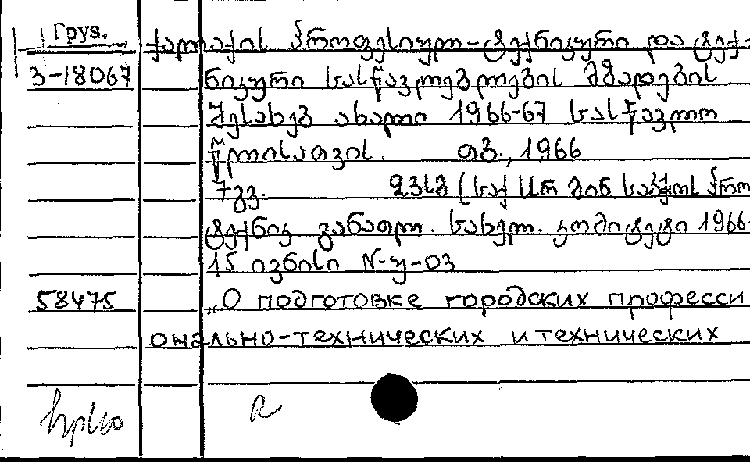 Груз.
ქალაქის პროფესიულ-ტექნიკური და ტექ-
3-18067 ნიკური სასწავლებლების მზადების
შესახებ ახალი 1966-67 სასწავლო
წლისათვის. თბ., 1966
7გვ. 23სმ (საქ სსრ მინ საბჭოს პრო
ტექნიკ განათლ. სახელ. კომიტეტი 1966-
15 ივნისი N-у-03
58475 „О подготовке городских професси
онально-технических и технических